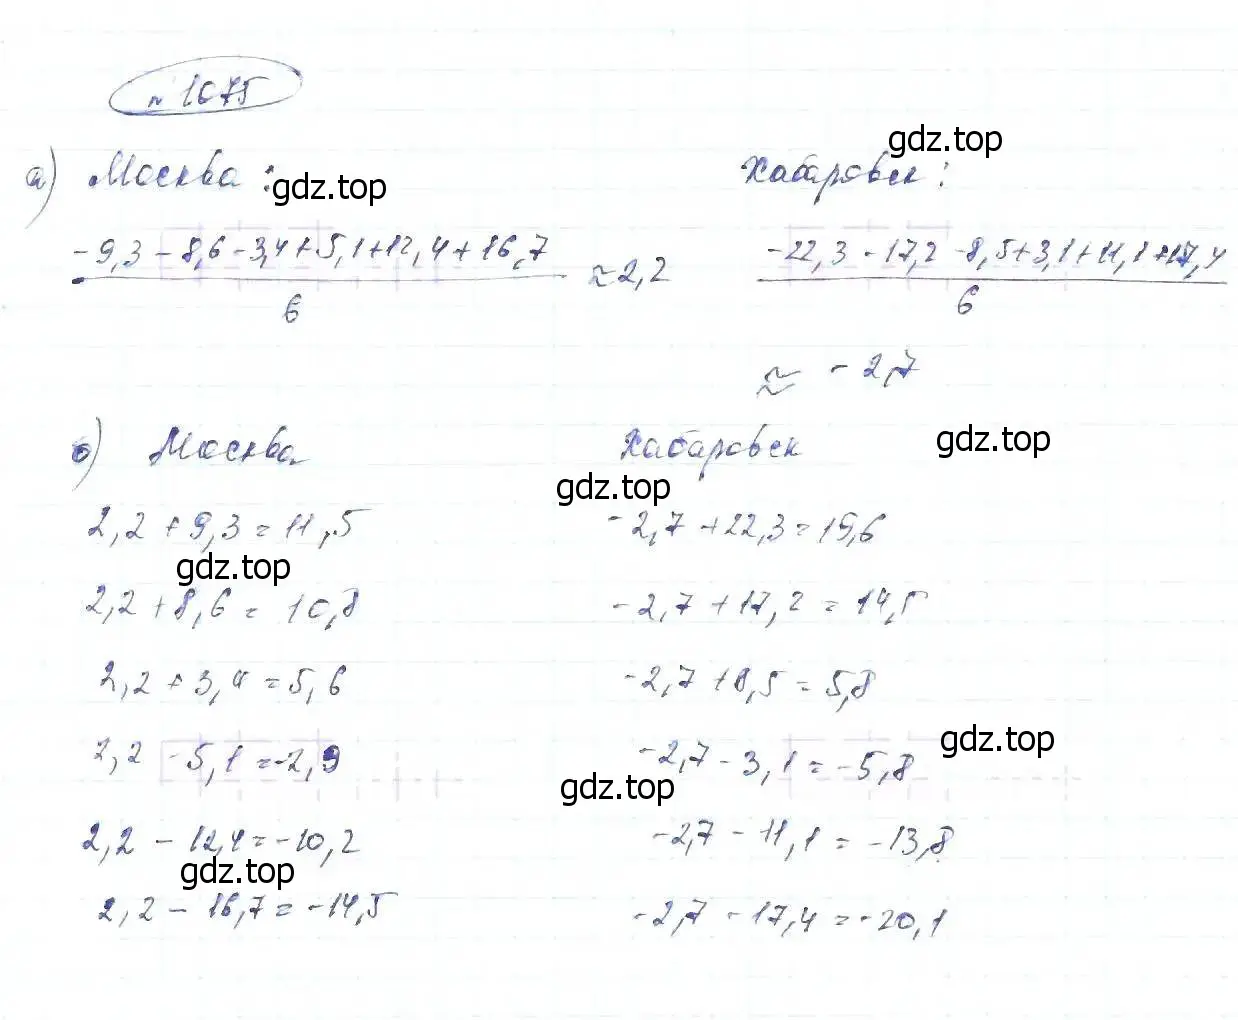 № 1075
gdz.top
а) Москва: Хабаровск:
gdz.top
-9,3 - 8,6 - 3,4 + 5,1 + 12,4 + 16,7 / 6 ≈ 2,2
-22,3 - 17,2 - 8,5 + 3,1 + 11,1 + 17,4 / 6
≈ -2,7
б) Москва Хабаровск
gdz.top
gdz.top
2,2 + 9,3 = 11,5 -2,7 + 22,3 = 19,6
gdz.top
2,2 + 8,6 = 10,8 -2,7 + 17,2 = 14,5
2,2 + 3,4 = 5,6 -2,7 + 8,5 = 5,8
gdz.top
2,2 - 5,1 = -2,9 -2,7 - 3,1 = -5,8
gdz.top
2,2 - 12,4 = -10,2 -2,7 - 11,1 = -13,8
gdz.top
2,2 - 16,7 = -14,5 -2,7 - 17,4 = -20,1